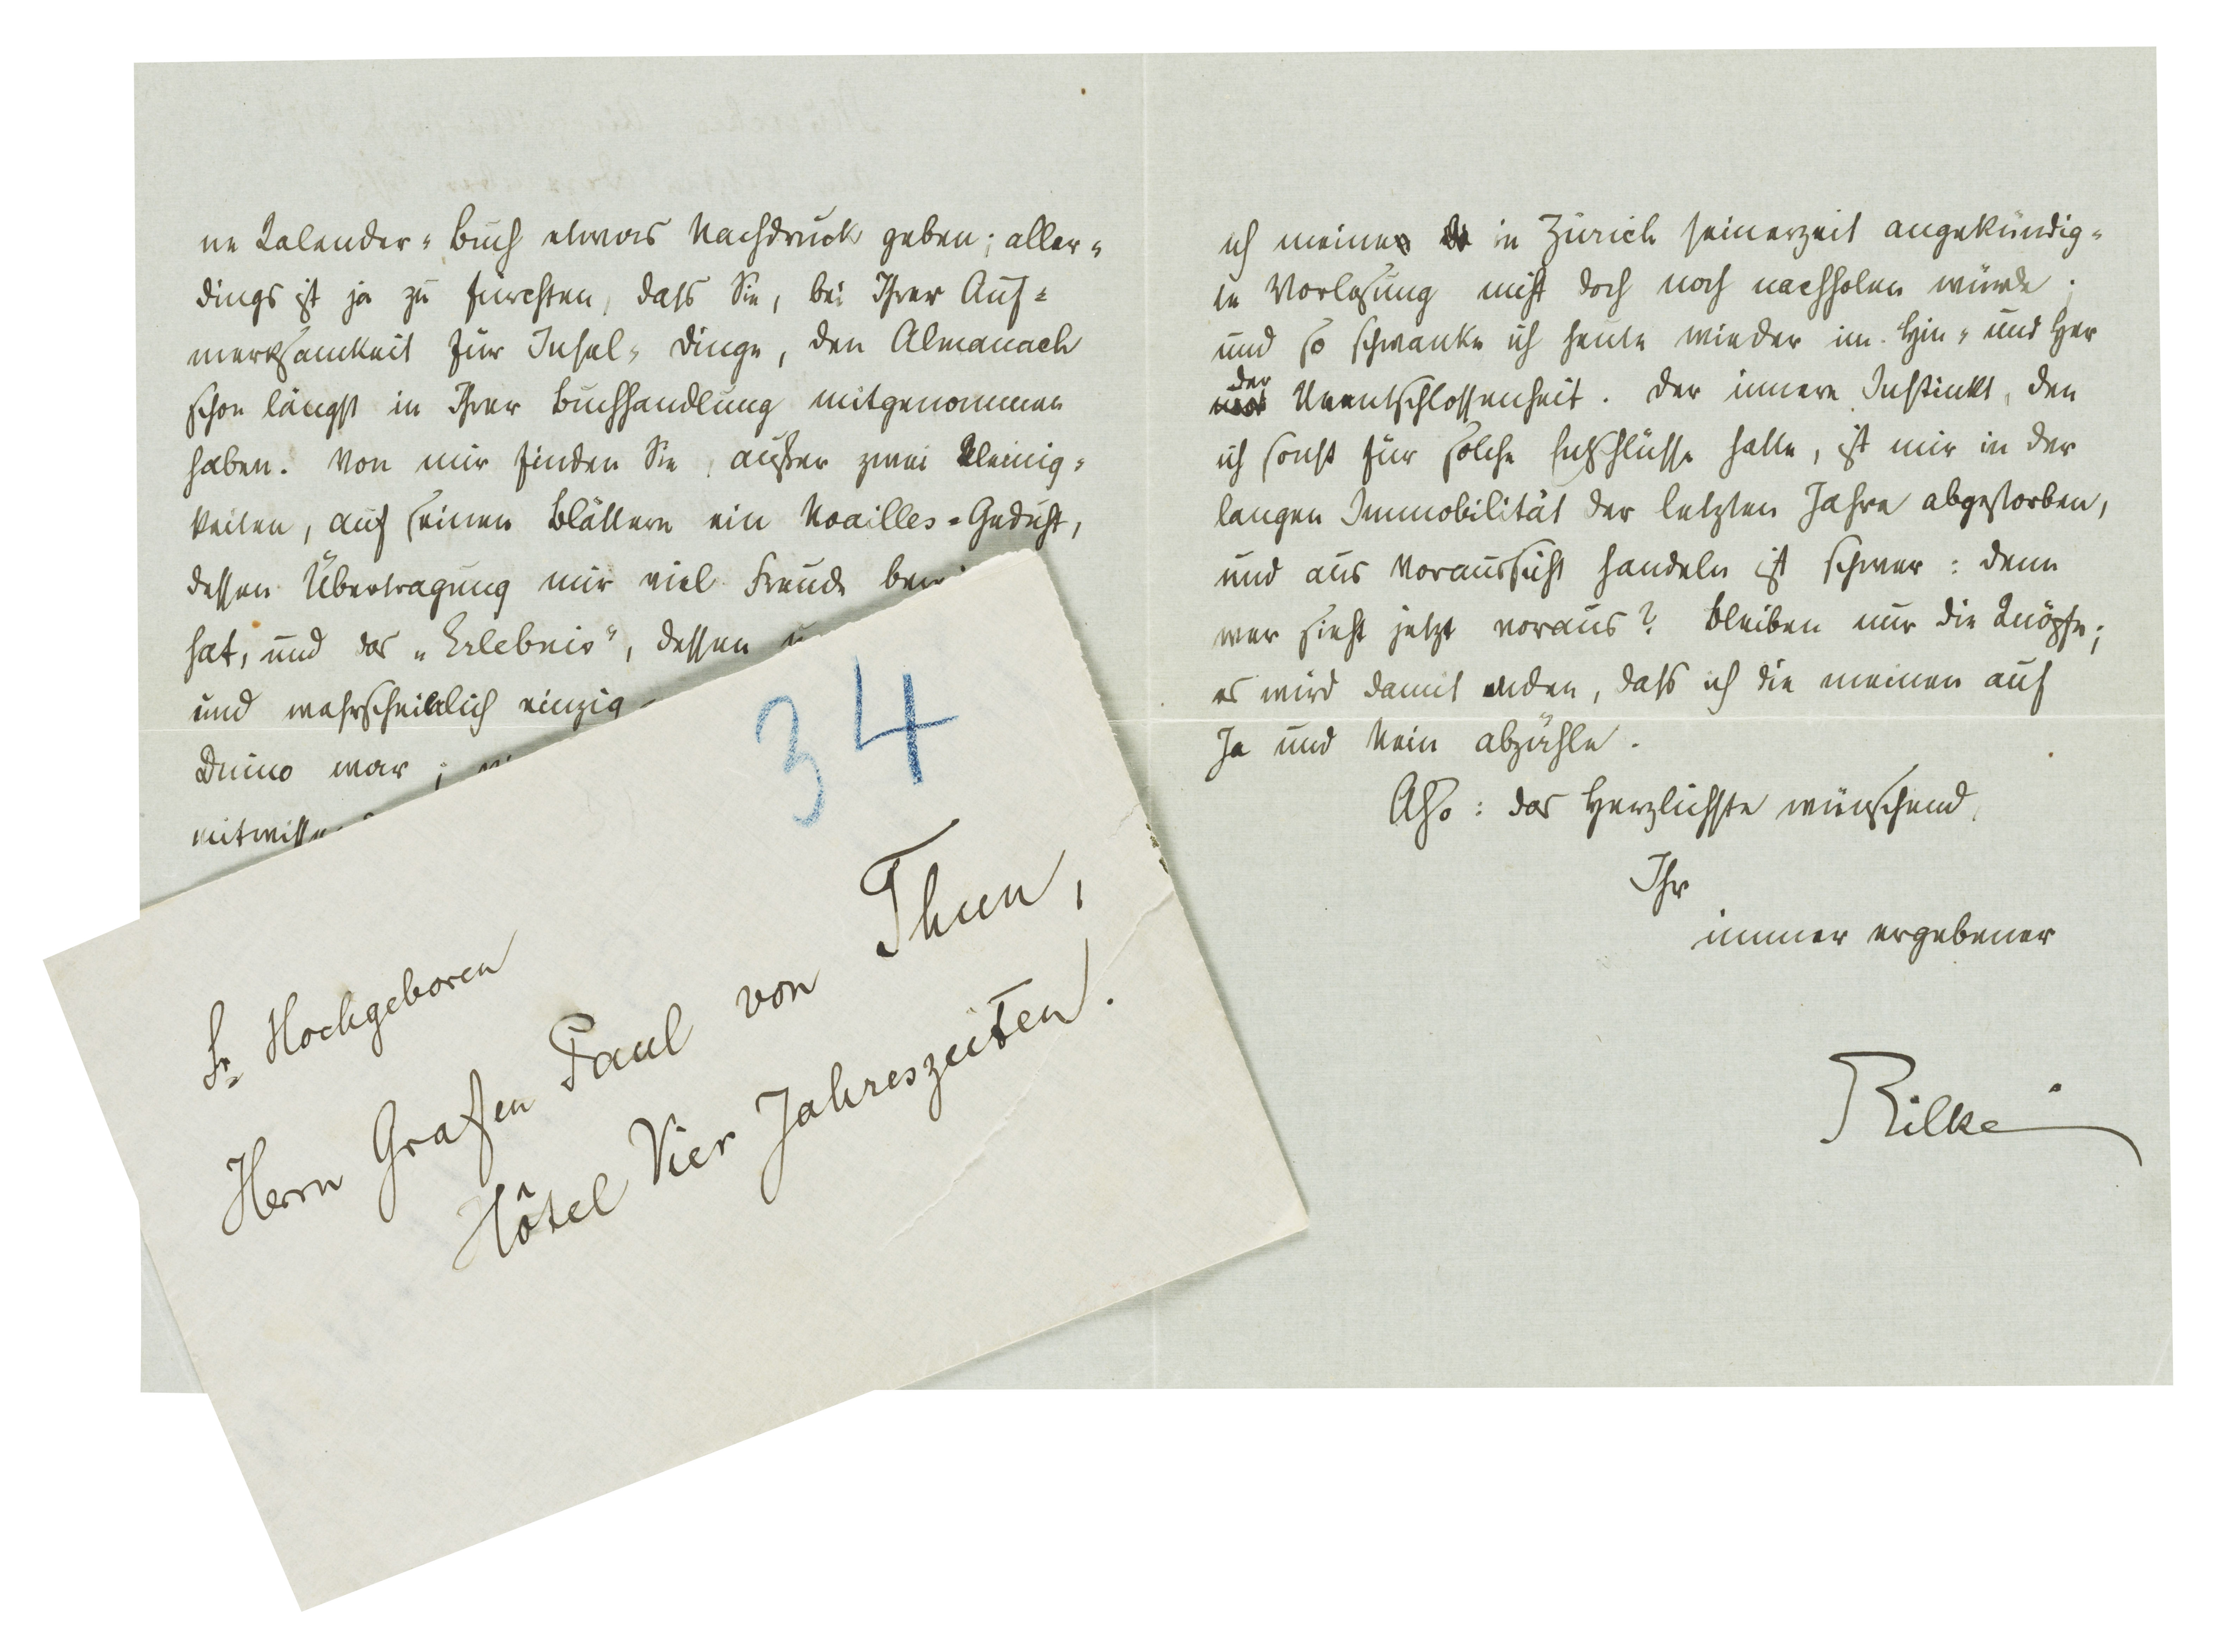 ne Kalender-Buch etwas Nachdruck geben; aller-
dings ist ja zu fürchten, dass Sie, bei Ihrer Auf-
merksamkeit für Insel-Dinge, den Almanach
schon längst in Ihrer Buchhandlung mitgenommen
haben. Von mir finden Sie, außer zwei Kleinig-
keiten, auf seinen Blättern ein Noailles-Gedicht,
dessen Übertragung mir viel Freude
hat, und das „Erlebnis“, dessen
und wahrscheinlich einzig
Duino war;
ich meine in Zürich seinerzeit angekündig-
te Vorlesung nicht doch noch nachholen würde;
und so schwanke ich heute wieder im Hin- und Her
der Unentschlossenheit. Der innere Instinkt, den
ich sonst für solche Entschlüsse hatte, ist mir in der
langen Immobilität der letzten Jahre abgestorben,
und aus Voraussicht handeln ist schwer: denn
wer sieht jetzt voraus? Bleiben nur die Knöpfe;
es wird damit enden, dass ich die meinen auf
Ja und Nein abzähle.
Also: das Herzlichste wünschend,
Ihr
immer ergebener
Rilke
34
Sr Hochgeboren
Herrn Grafen Paul von Thun,
Hôtel Vier Jahreszeiten.